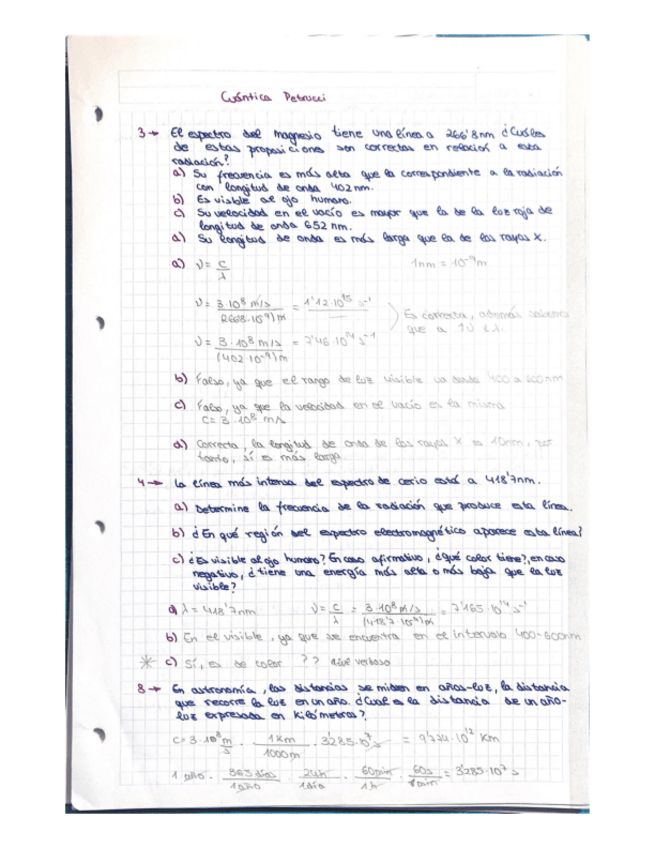 Cuántica Petrucci
3→ El espectro del magnesio tiene una línea a 266'8nm ¿Cuáles
de estas proposiciones son correctas en relación a esta
radiación?
a) Su frecuencia es más alta que la correspondiente a la radiación
con longitud de onda 402 nm.
b) Es visible al ojo humano.
c) Su velocidad en el vacío es mayor que la de la luz roja de
longitud de onda 652 nm.
d) Su longitud de onda es más larga que la de los rayos X.
a) ν = c/λ 1nm = 10⁻⁹m
ν = 3·10⁸ m/s / (266'8·10⁻⁹) m = 1'12·10¹⁵ s⁻¹
Es correcta, además sabemos
que a ↑ν ↓λ.
ν = 3·10⁸ m/s / (402·10⁻⁹) m = 7'46·10¹⁴ s⁻¹
b) Falso, ya que el rango de luz visible va desde 400 a 600nm
c) Falso, ya que la velocidad en el vacío es la misma
c = 3·10⁸ m/s
d) Correcta, la longitud de onda de los rayos X es 10nm, por
tanto, sí es más larga
4→ La línea más intensa del espectro de cerio está a 418'7nm.
a) Determine la frecuencia de la radiación que produce esta línea.
b) ¿En qué región del espectro electromagnético aparece esta línea?
c) ¿Es visible al ojo humano? En caso afirmativo, ¿qué color tiene?, en caso
negativo, ¿tiene una energía más alta o más baja que la luz
visible?
a) λ = 418'7nm ν = c/λ = 3·10⁸ m/s / (418'7·10⁻⁹) m = 7'165·10¹⁴ s⁻¹
b) En el visible, ya que se encuentra en el intervalo 400-600nm
* c) Sí, es de color ??
8→ En astronomía, las distancias se miden en años-luz, la distancia
que recorre la luz en un año. ¿Cuál es la distancia de un año-
luz expresada en kilómetros?
c = 3·10⁸ m/s · 1km/1000m · 3'285·10⁷ = 9'774·10¹² km
1 año · 365 días/1 año · 24h/1día · 60min/1h · 60s/1min = 3'285·10⁷ s